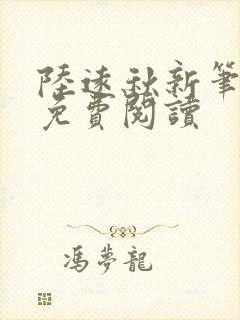 陸遠秋新筆
免費閱讀
馮夢龍